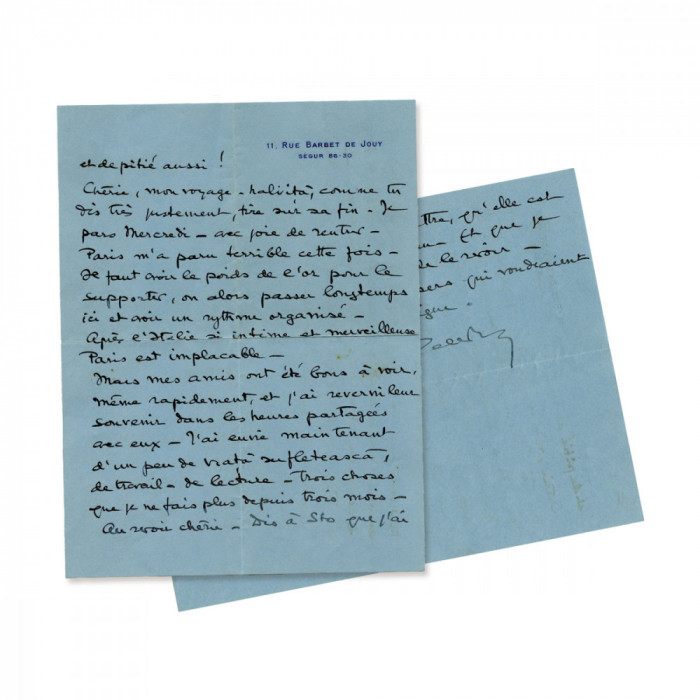 11. RUE BARBET DE JOUY
SEGUR 86-30
et de pitié aussi !
Chérie, mon voyage - halvità, comme tu
dis très justement, tire sur sa fin - Je
pars Mercredi - avec joie de rentrer -
Paris m'a paru terrible cette fois -
Il faut avoir le poids de l'or pour le
supporter, ou alors passer longtemps
ici et avoir un rythme organisé -
Après l'Italie si intime et merveilleuse
Paris est implacable -
Mais mes amis ont été bons à voir,
même rapidement, et j'ai reverni leur
souvenir dans les heures partagées
avec eux - J'ai envie maintenant
d'un peu de viatà sufletească,
de travail - de lecture - Trois choses
que je ne fais plus depuis trois mois -
Au revoir chérie - Dis à Sto que j'ai
ttre, qu'elle est
Et que je
de le revoir -
sers qui voudraient
gue -